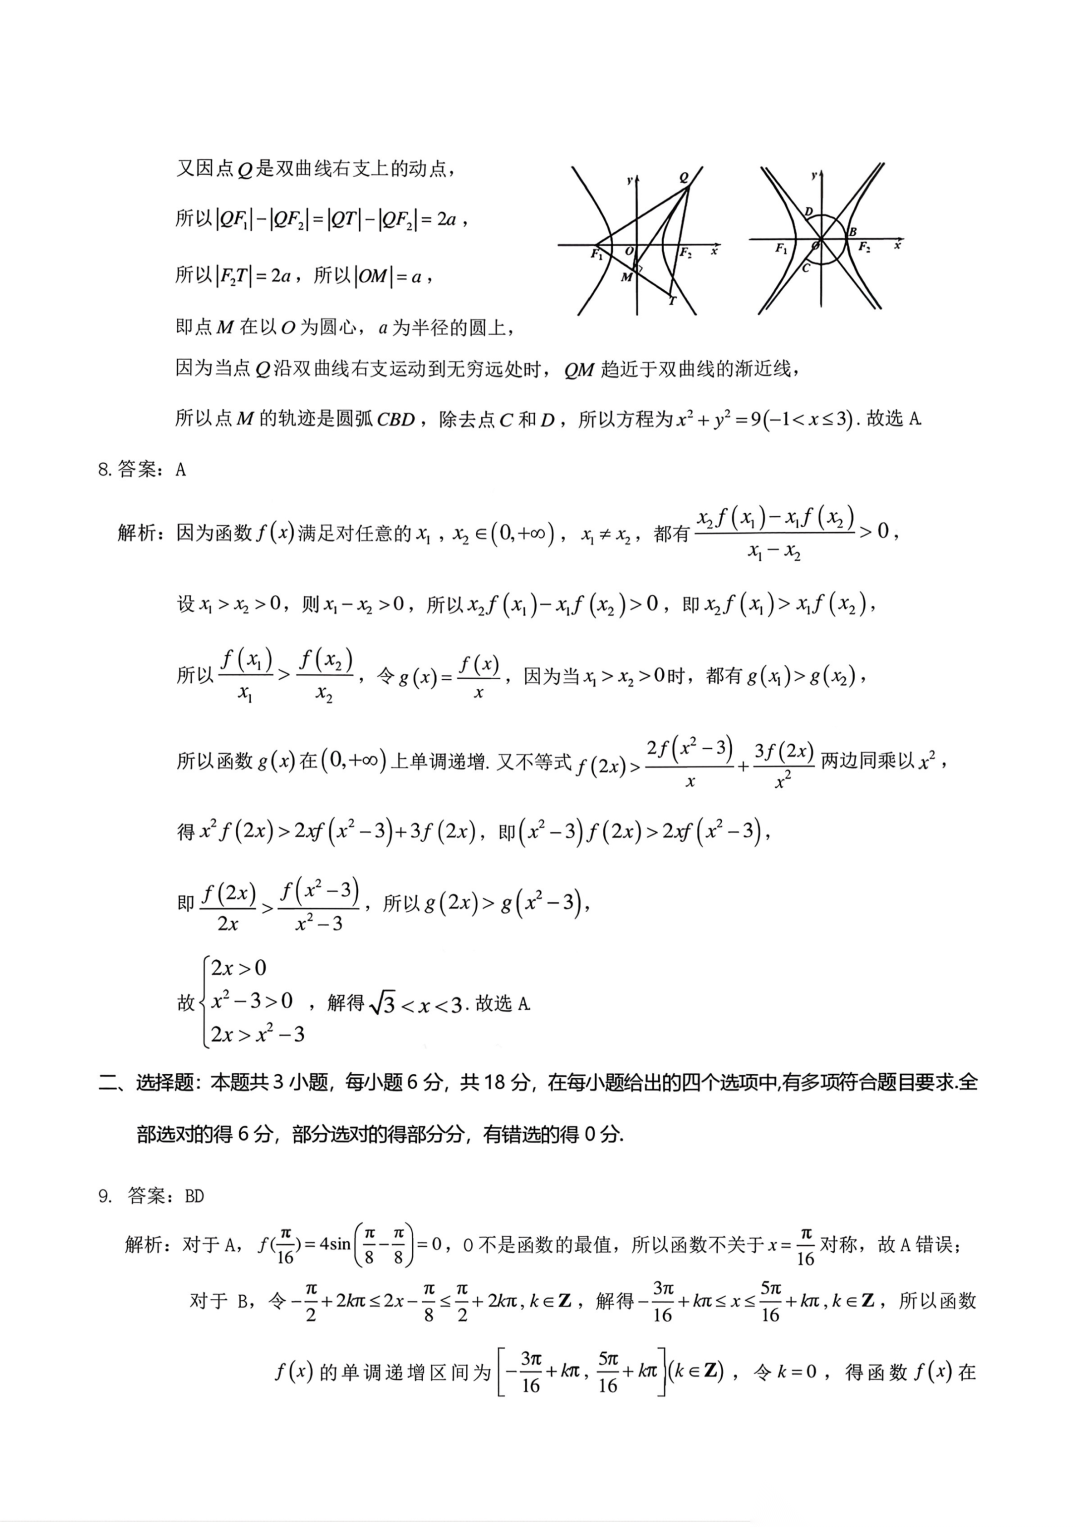 又因点Q是双曲线右支上的动点，
所以|QF₁|−|QF₂|=|QT|−|QF₂|=2a，
所以|F₂T|=2a，所以|OM|=a，
即点M在以O为圆心，a为半径的圆上，
y Q F₁ O F₂ x M T
y D B F₁ O F₂ x C
因为当点Q沿双曲线右支运动到无穷远处时，QM趋近于双曲线的渐近线，
所以点M的轨迹是圆弧CBD，除去点C和D，所以方程为x²+y²=9(−1<x≤3).故选A.
8.答案：A
解析：因为函数f(x)满足对任意的x₁，x₂∈(0,+∞)，x₁≠x₂，都有 (x₂f(x₁)−x₁f(x₂))/(x₁−x₂)>0，
设x₁>x₂>0，则x₁−x₂>0，所以x₂f(x₁)−x₁f(x₂)>0，即x₂f(x₁)>x₁f(x₂)，
所以 f(x₁)/x₁ > f(x₂)/x₂，令g(x)=f(x)/x，因为当x₁>x₂>0时，都有g(x₁)>g(x₂)，
所以函数g(x)在(0,+∞)上单调递增.又不等式f(2x)>2f(x²−3)/x+3f(2x)/x²两边同乘以x²，
得x²f(2x)>2xf(x²−3)+3f(2x)，即(x²−3)f(2x)>2xf(x²−3)，
即 f(2x)/2x > f(x²−3)/(x²−3)，所以g(2x)>g(x²−3)，
故{2x>0
x²−3>0，解得√3<x<3.故选A.
2x>x²−3
二、选择题：本题共3小题，每小题6分，共18分，在每小题给出的四个选项中,有多项符合题目要求.全
部选对的得6分，部分选对的得部分分，有错选的得0分.
9. 答案：BD
解析：对于A，f(π/16)=4sin(π/8−π/8)=0，0不是函数的最值，所以函数不关于x=π/16对称，故A错误；
对于B，令−π/2+2kπ≤2x−π/8≤π/2+2kπ,k∈Z，解得−3π/16+kπ≤x≤5π/16+kπ,k∈Z，所以函数
f(x)的单调递增区间为[−3π/16+kπ,5π/16+kπ](k∈Z)，令k=0，得函数f(x)在